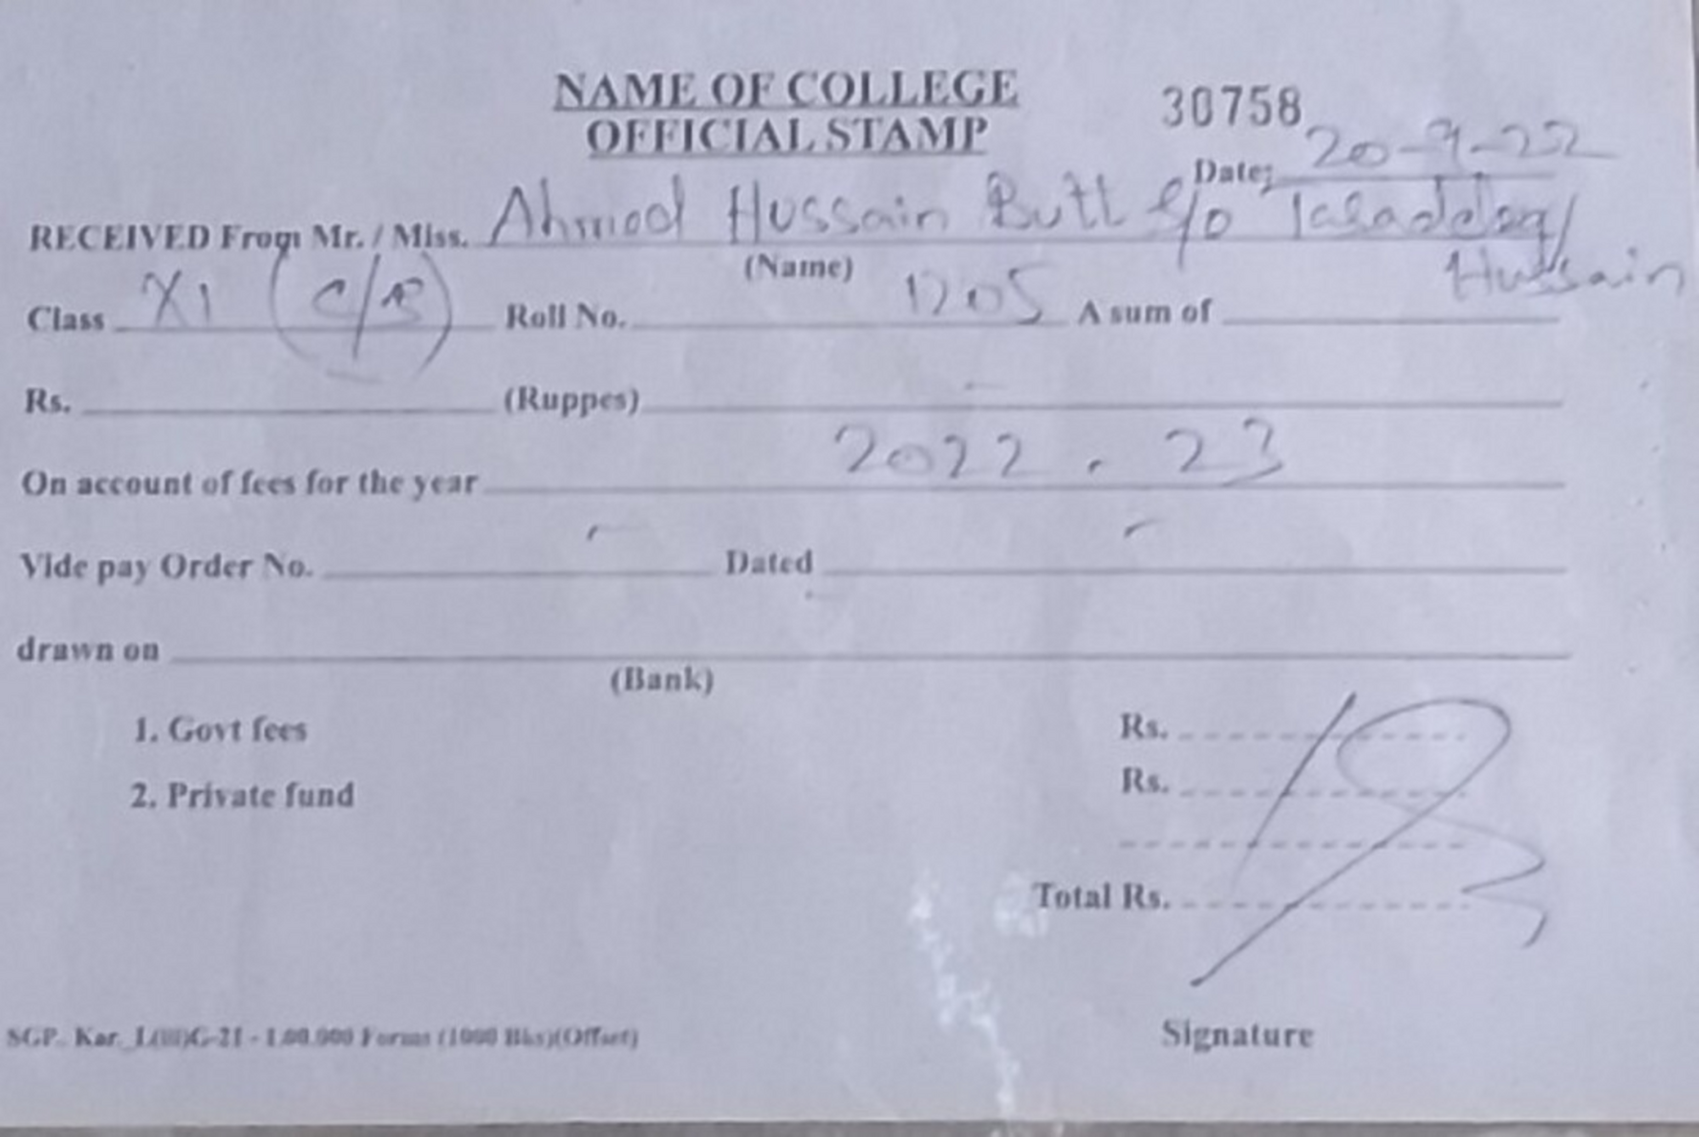 NAME OF COLLEGE
OFFICIAL STAMP
30758
Date; 20-9-22
RECEIVED From Mr. / Miss. Ahmad Hussain Butt S/o Tasadduq
Hussain
(Name)
Class XI (C/B) Roll No. 1205 A sum of
Rs. (Ruppes)
On account of fees for the year 2022 - 23
Vide pay Order No. - Dated -
drawn on
(Bank)
1. Govt fees Rs.
2. Private fund Rs.
Total Rs.
Signature
SGP. Kar. L(iii)G-21 - 1.00.000 Forms (1000 Bks)(Offset)